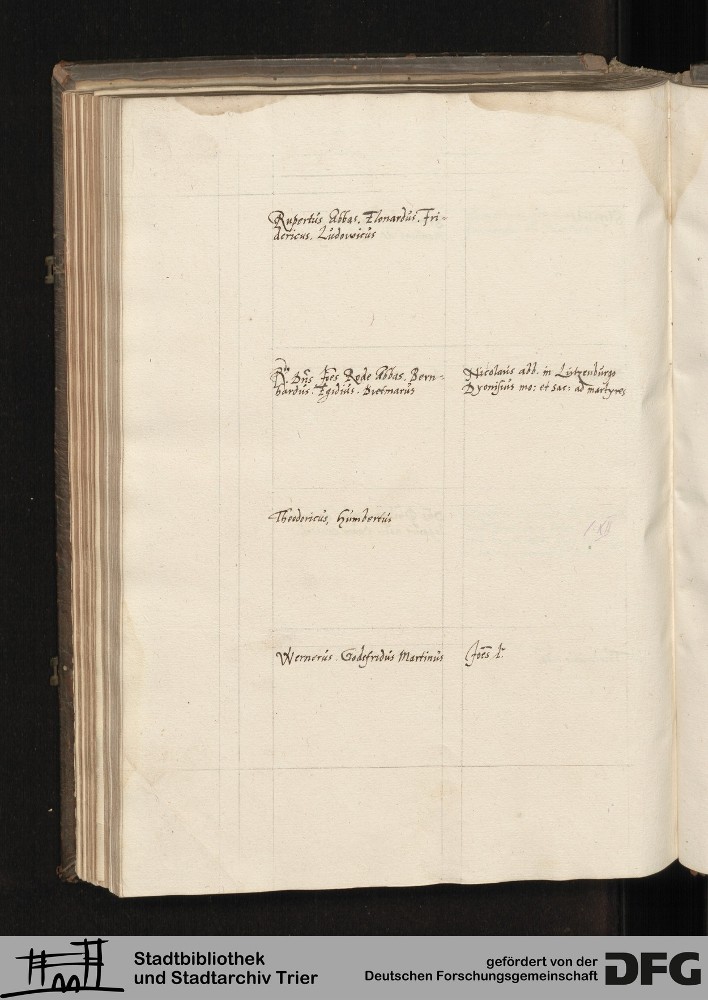 Rupertus Abbas. Elonardus. Fri-
dericus. Ludowicus
R. Dns Joes Rode Abbas. Bern-
hardus. Egidius. Dietmarus
Nicolaus abb. in Lutzenburgo
Dyonisius mo: et sac: ad martyres
Theodoricus, Humbertus
Wernerus. Godefridus Martinus
Joes l.
Stadtbibliothek
und Stadtarchiv Trier
gefördert von der
Deutschen Forschungsgemeinschaft
DFG